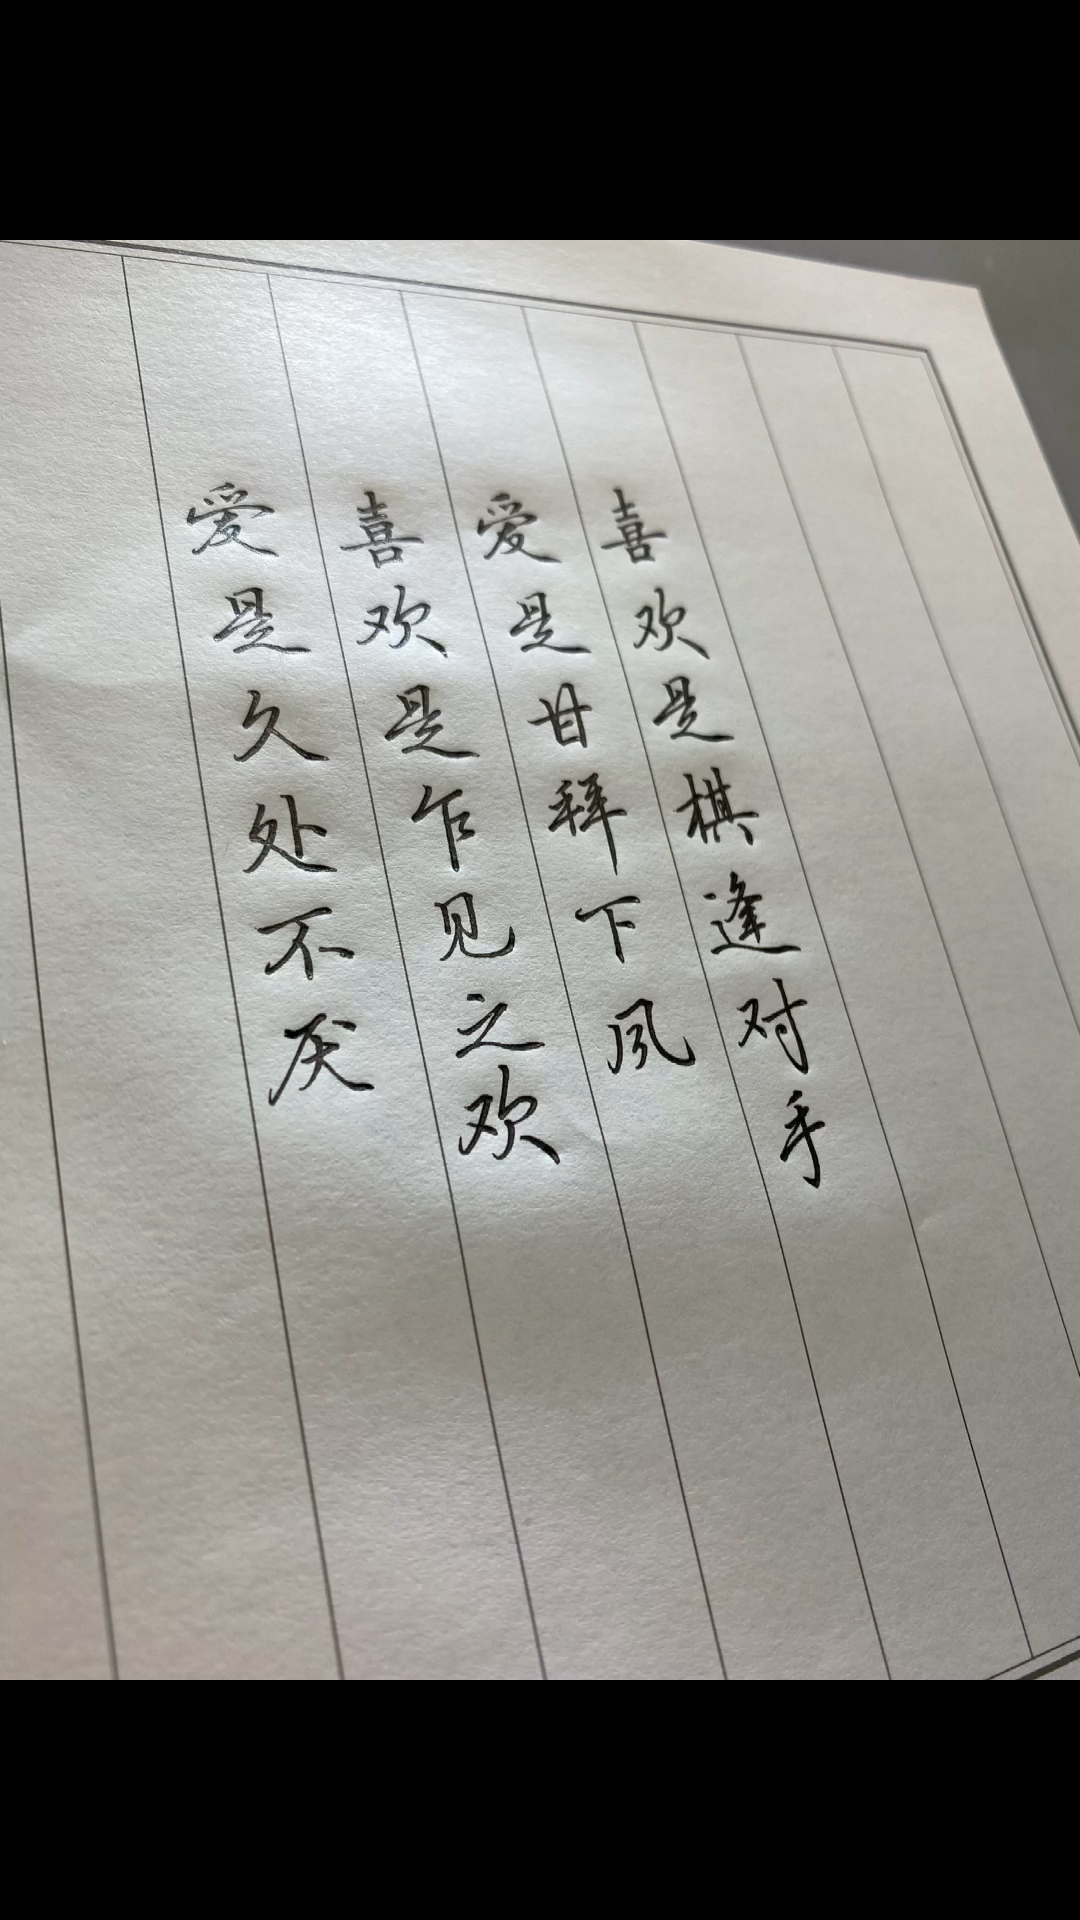 喜欢是棋逢对手
爱是甘拜下风
喜欢是乍见之欢
爱是久处不厌